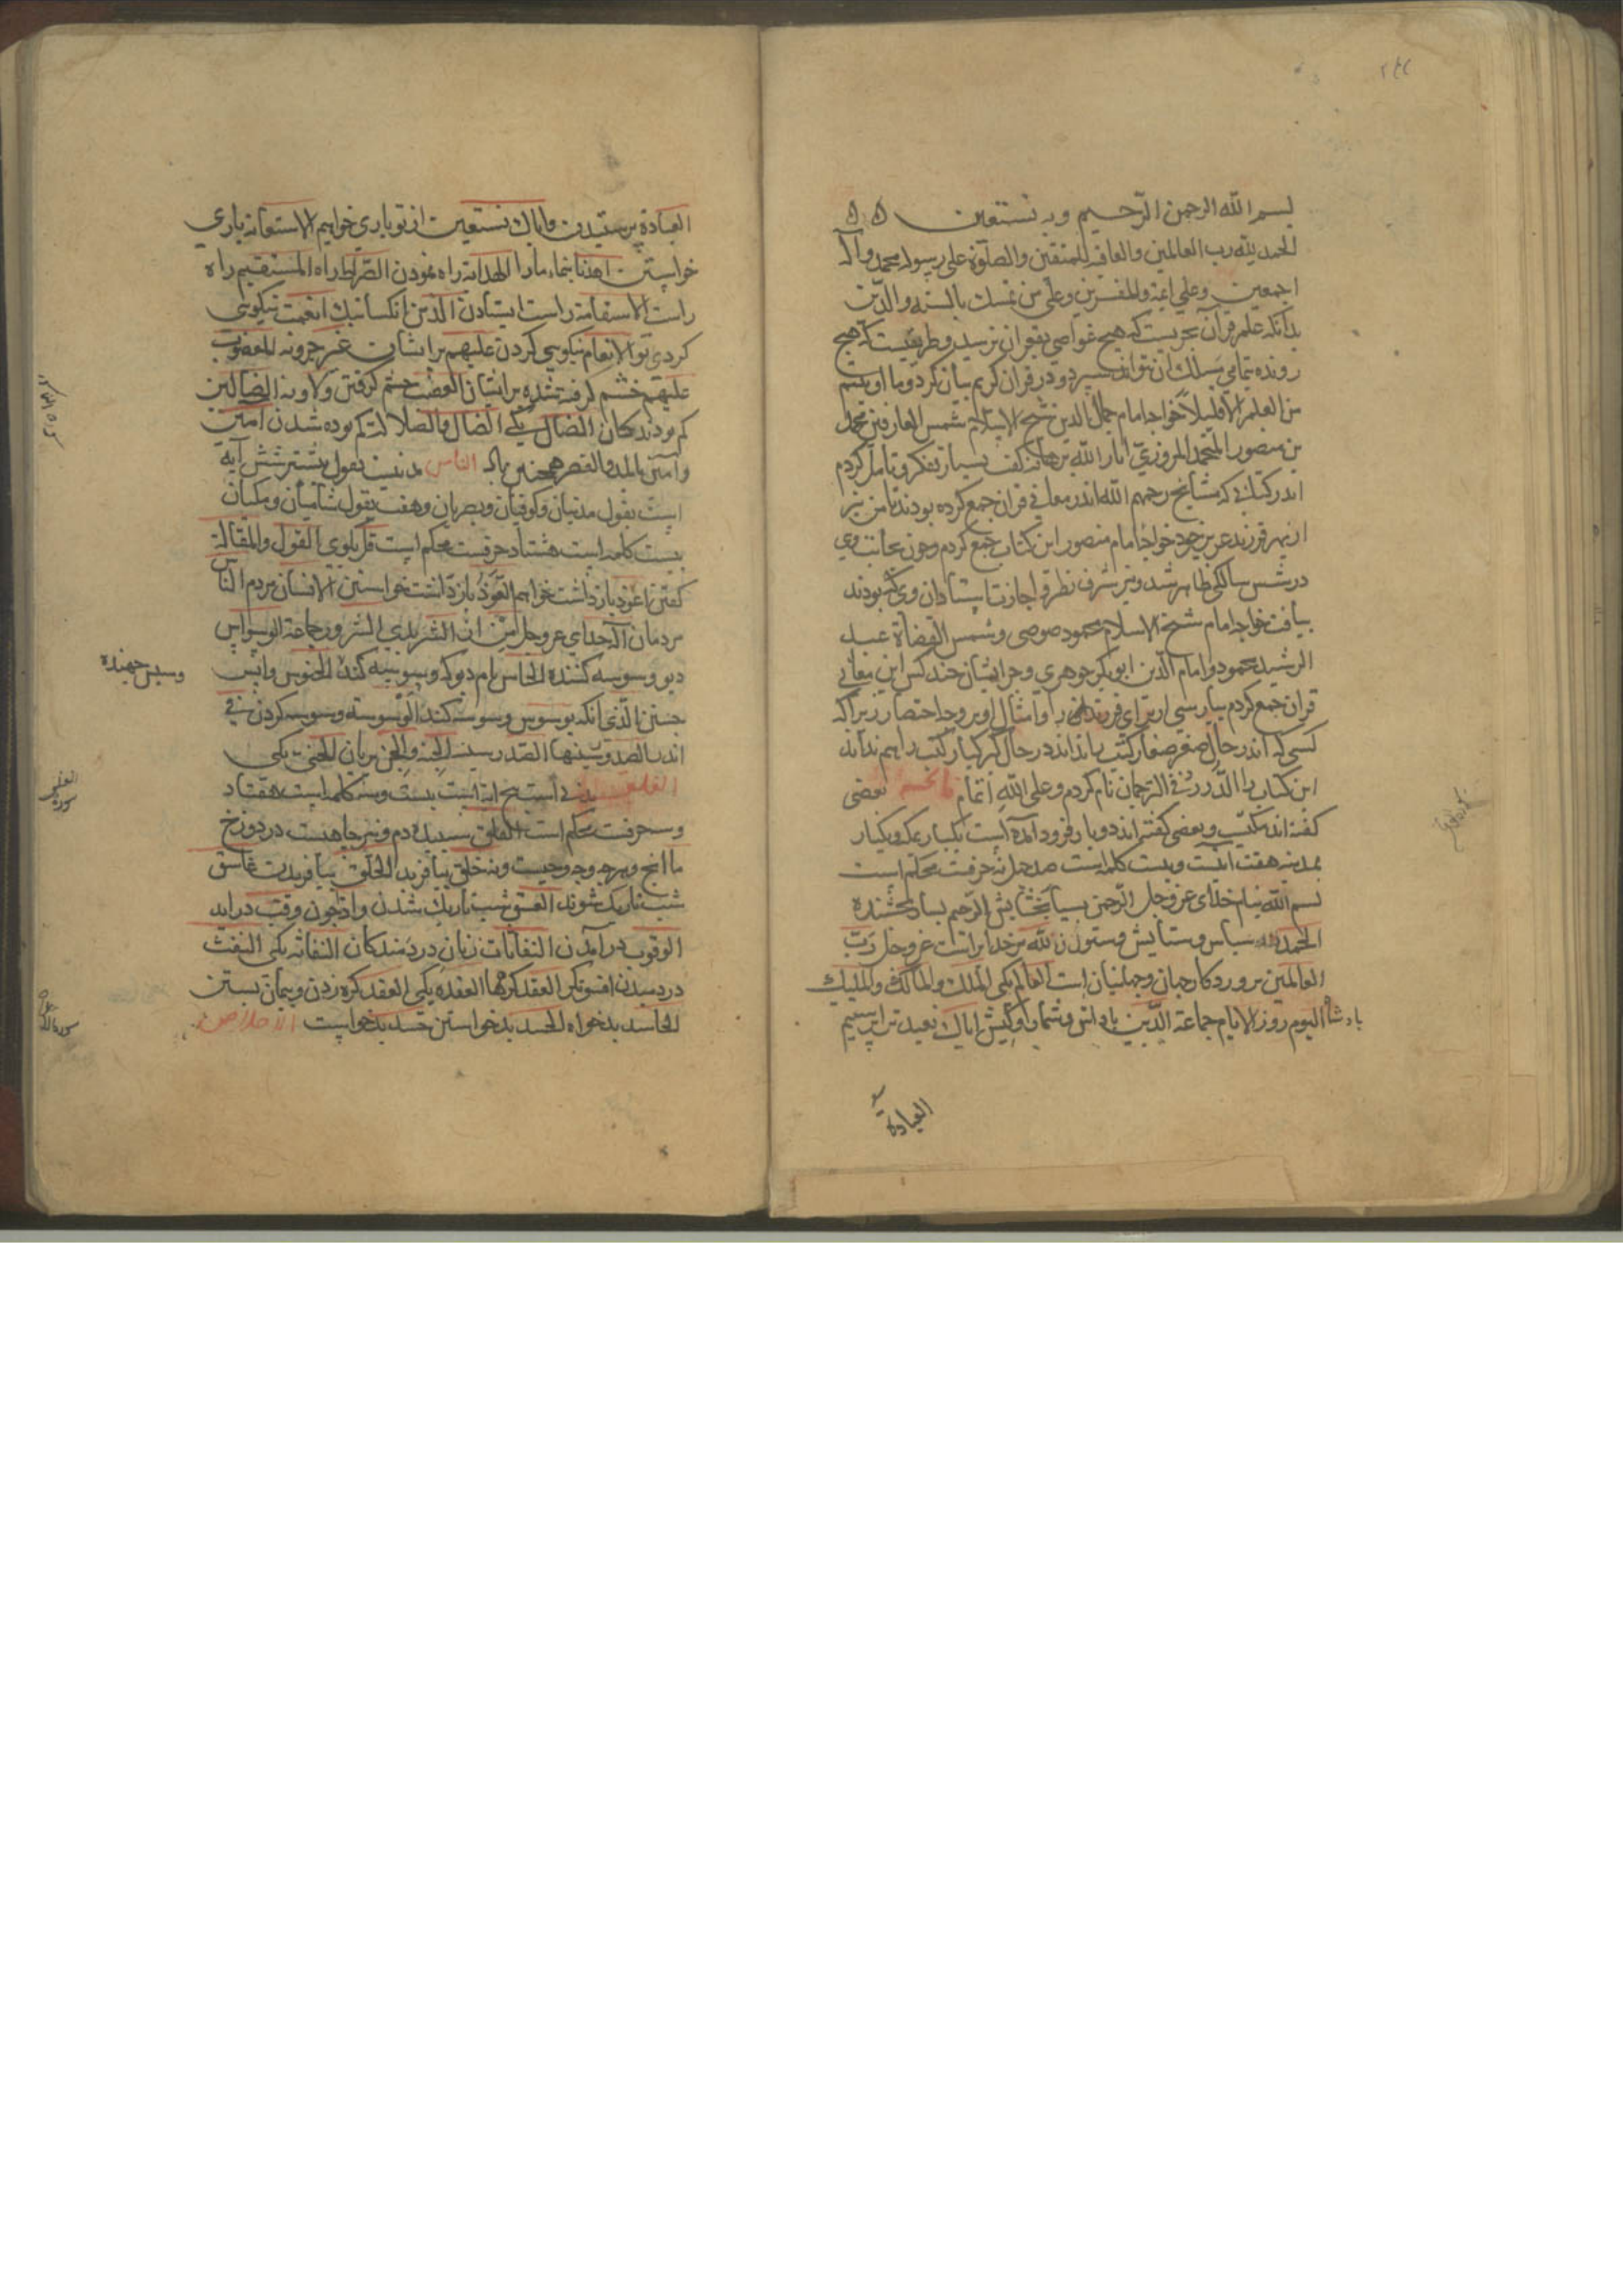 بسم الله الرحمن الرحيم وبه نستعين
الحمد لله رب العالمين والعاقبة للمتقين والصلوة على رسوله محمد وآله
اجمعين وعلى ائمة والمفسرين وعلى من تمسك بالسنة والدين
بدانكه علم قرآن بحريست كه هيچ غواصى بقعر آن نرسيد وطريقيست كه هيچ
رونده بتمامى مسلك آن نتواند سپرد ودر قرآن كريم بيان كرد وما اوتيتم
من العلم الا قليلا خواجه امام جمال الدين شيخ الاسلام شمس العارفين محمد
بن منصور المتحمد المروزي انار الله برهانه گفت بسيار تفكر وتامل كردم
اندر كتابى كه مشايخ رحمهم الله اندر معانى قرآن جمع كرده بودند تا من نيز
از بهر فرزند عزيز خود خواجه امام منصور اين كتاب جمع كردم وچون نجابت وى
در شش سالگى ظاهر شد ونيز شرف نظر واجازت استادان وى كه بودند
بيافت خواجه امام شيخ الاسلام محمود صوصى وشمس القضاة عبد
الرشيد محمود وامام الدين ابوبكر جوهرى وجز ايشان چند كس اين معانى
قرآن جمع كردم بپارسى از براى فرزندان را وامثال او بر وجه اختصار زيرا كه
كسى كه اندر حال صغر صغار كتب بداند در حال كبر كبار كتب را هم بداند
اين كتاب را الدرر فى الترجمان نام كردم وعلى الله اتمام فاتحه بعضى
گفته اند مكيست وبعضى گفته اند دو بار فرود آمده است يكبار بمكه ويكبار
بمدينه هفت آيتست وبيست كلمه است صد چهل نه حرفست محكم است
بسم الله بنام خداى عز وجل الرحمن بسيار بخشايش الرحيم بسيار بخشنده
الحمد لله سپاس وستايش وستودن لله مر خدايراست عز وجل رب
العالمين پروردگار جهان وجهانيان است العالم يكى الملك والمالك والمليك
پادشاه اليوم روز الايام جماعة الدين پاداش وشمار وكيش اياك نعبد ترا پرستيم
العبادة
العبادة پرستيدن واياك نستعين از تو يارى خواهيم الاستعانة يارى
خواستن اهدنا بنما مارا الهداية راه نمودن الصراط راه المستقيم راه
راست الاستقامة راست ايستادن الذين آنكسانيك انعمت نيكويى
كردى تو الانعام نيكويى كردن عليهم بر ايشان غير جز ونه المغضوب
عليهم خشم گرفته شده بر ايشان الغضب خشم گرفتن ولا ونه الضالين
كم بودندگان الضال يكى الضال والضلالت كم بوده شدن آمين
وآمين بالمد والقصر همچنين باد الناس مدنيست بقول بيشتر شش آيه
است بقول مدنيان وكوفيان وبصريان وهفت بقول شاميان ومكيان
بيست كلمه است هشتاد حرفست محكم است قل بگوى القول والمقالة
گفتن اعوذ بازداشت خواهم التعوذ بازداشت خواستن الانسان مردم الناس
مردمان اله خداى عز وجل من از الشر بدى الشرور جماعة الوسواس
ديو وسوسه كننده الخناس نام ديو كه وسوسه كند الخنوس واپس
وسپس جهنده
جستن الذى آنكه يوسوس وسوسه كند الوسوسة وسوسه كردن فى
اندر الصدور سينها الصدر سينه الجنة والجن پريان الجنى يكى
الفلق مدنى است پنج آية است بيست وسه كلمه است هفتاد
وسه حرفست محكم است الفلق سپيده دم ونيز چاهيست در دوزخ
ما آنچ وهرچه وچه وچيست ونه خلق بيافريد الخلق بيافريدن غاسق
شب تاريك شونده الغسق شب تاريك شدن واذا چون وقب درآيد
الوقوب درآمدن النفاثات زنان دردمندگان النفاثة يكى النفث
دردميدن افسونگر العقد گرهها العقدة يكى العقد گره زدن وپيمان بستن
الحاسد بدخواه الحسد بدخواستن حسد بدخواست الاخلاص